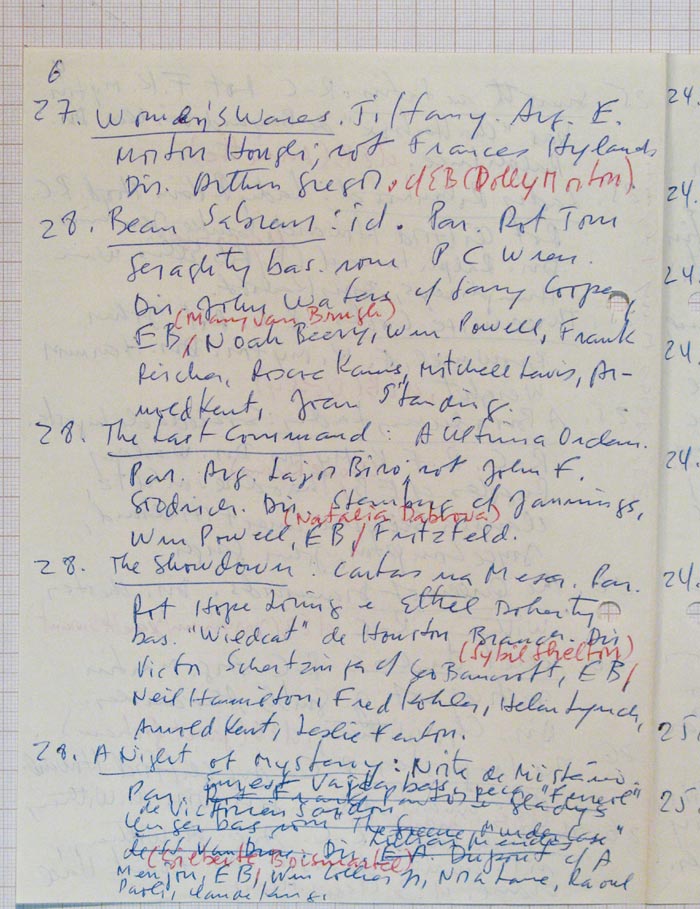 6
27. Women's Wares. Tiffany. Arg. E.
Morton Hough; rot Frances Hylands
Dir. Arthur Gregor. c/EB (Dolly Morton).
28. Beau Sabreur: id. Par. Rot Tom
Geraghty bas. rom P C Wren.
Dir. John Waters c/ Gary Cooper,
(Mary van Brugh)
EB/ Noah Beery, Wm Powell, Frank
Reicher, Roscoe Karns, Mitchell Lewis, Ar-
nold Kent, Joan Standing.
28. The Last Command: A Última Ordem.
Par. Arg. Lajos Biro; rot John F.
Goodrich. Dir. c/ Jannings,
(Natalia Dabrova)
Wm Powell, EB/ Fritz Feld.
28. The Showdown: Cartas na Mesa. Par.
Rot Hope Loring e Ethel Doherty
bas. "Wildcat" de Houston Branch. Dir
(Sybil Shelton)
Victor Schertzinger c/ Geo Bancroft, EB/
Neil Hamilton, Fred Kohler, Helen Lynch,
Arnold Kent, Leslie Fenton.
28. A Night of Mystery: Noite de Mistério.
Par. Vajda bas. peça "Ferréol"
de Victorien Sardou
Gladys
Unger bas rom The Greene Murder Case"
de W. Van Dine. Dir. Lothar Mendes c/ A
(Gilberte Boismartel)
Menjou, EB/ Wm Collier Jr, Nora Lane, Raoul
Paoli, Claude King.
24.
24.
24.
24.
24.
24.
25.
25.